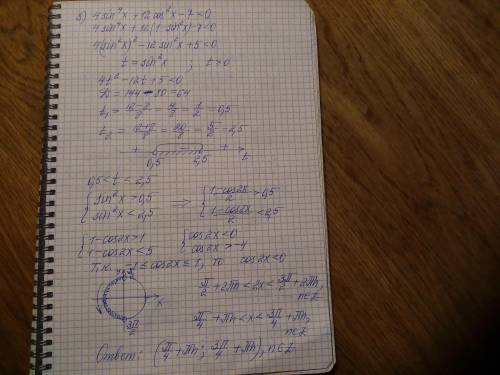 3) 4sin⁴x + 12cos²x - 7 < 0
4sin⁴x + 12(1 - sin²x) - 7 < 0
4(sin²x)² - 12sin²x + 5 < 0
t = sin²x ; t > 0
4t² - 12t + 5 < 0
D = 144 - 80 = 64
t₁ = (12-8)/8 = 4/8 = 1/2 = 0,5
t₂ = (12+8)/8 = 20/8 = 5/2 = 2,5
+ - +
0,5 2,5 t
0,5 < t < 2,5
{ sin²x > 0,5 ⇒ { (1-cos2x)/2 > 0,5
{ sin²x < 2,5 { (1-cos2x)/2 < 2,5
{ 1-cos2x > 1 { cos2x < 0
{ 1-cos2x < 5 { cos2x > -4
Т.к. -1 ≤ cos2x ≤ 1, то cos2x < 0
π/2 + 2πn < 2x < 3π/2 + 2πn,
n∈Z
x
π/4 + πn < x < 3π/4 + πn,
n∈Z
3π/2
Ответ: (π/4 + πn; 3π/4 + πn), n∈Z